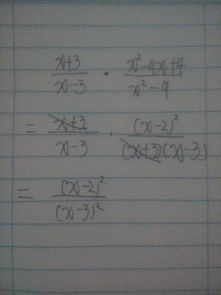 \frac{x+3}{x-3} \cdot \frac{x^2-4x+4}{x^2-9}
= \frac{x+3}{x-3} \cdot \frac{(x-2)^2}{(x+3)(x-3)}
= \frac{(x-2)^2}{(x-3)^2}